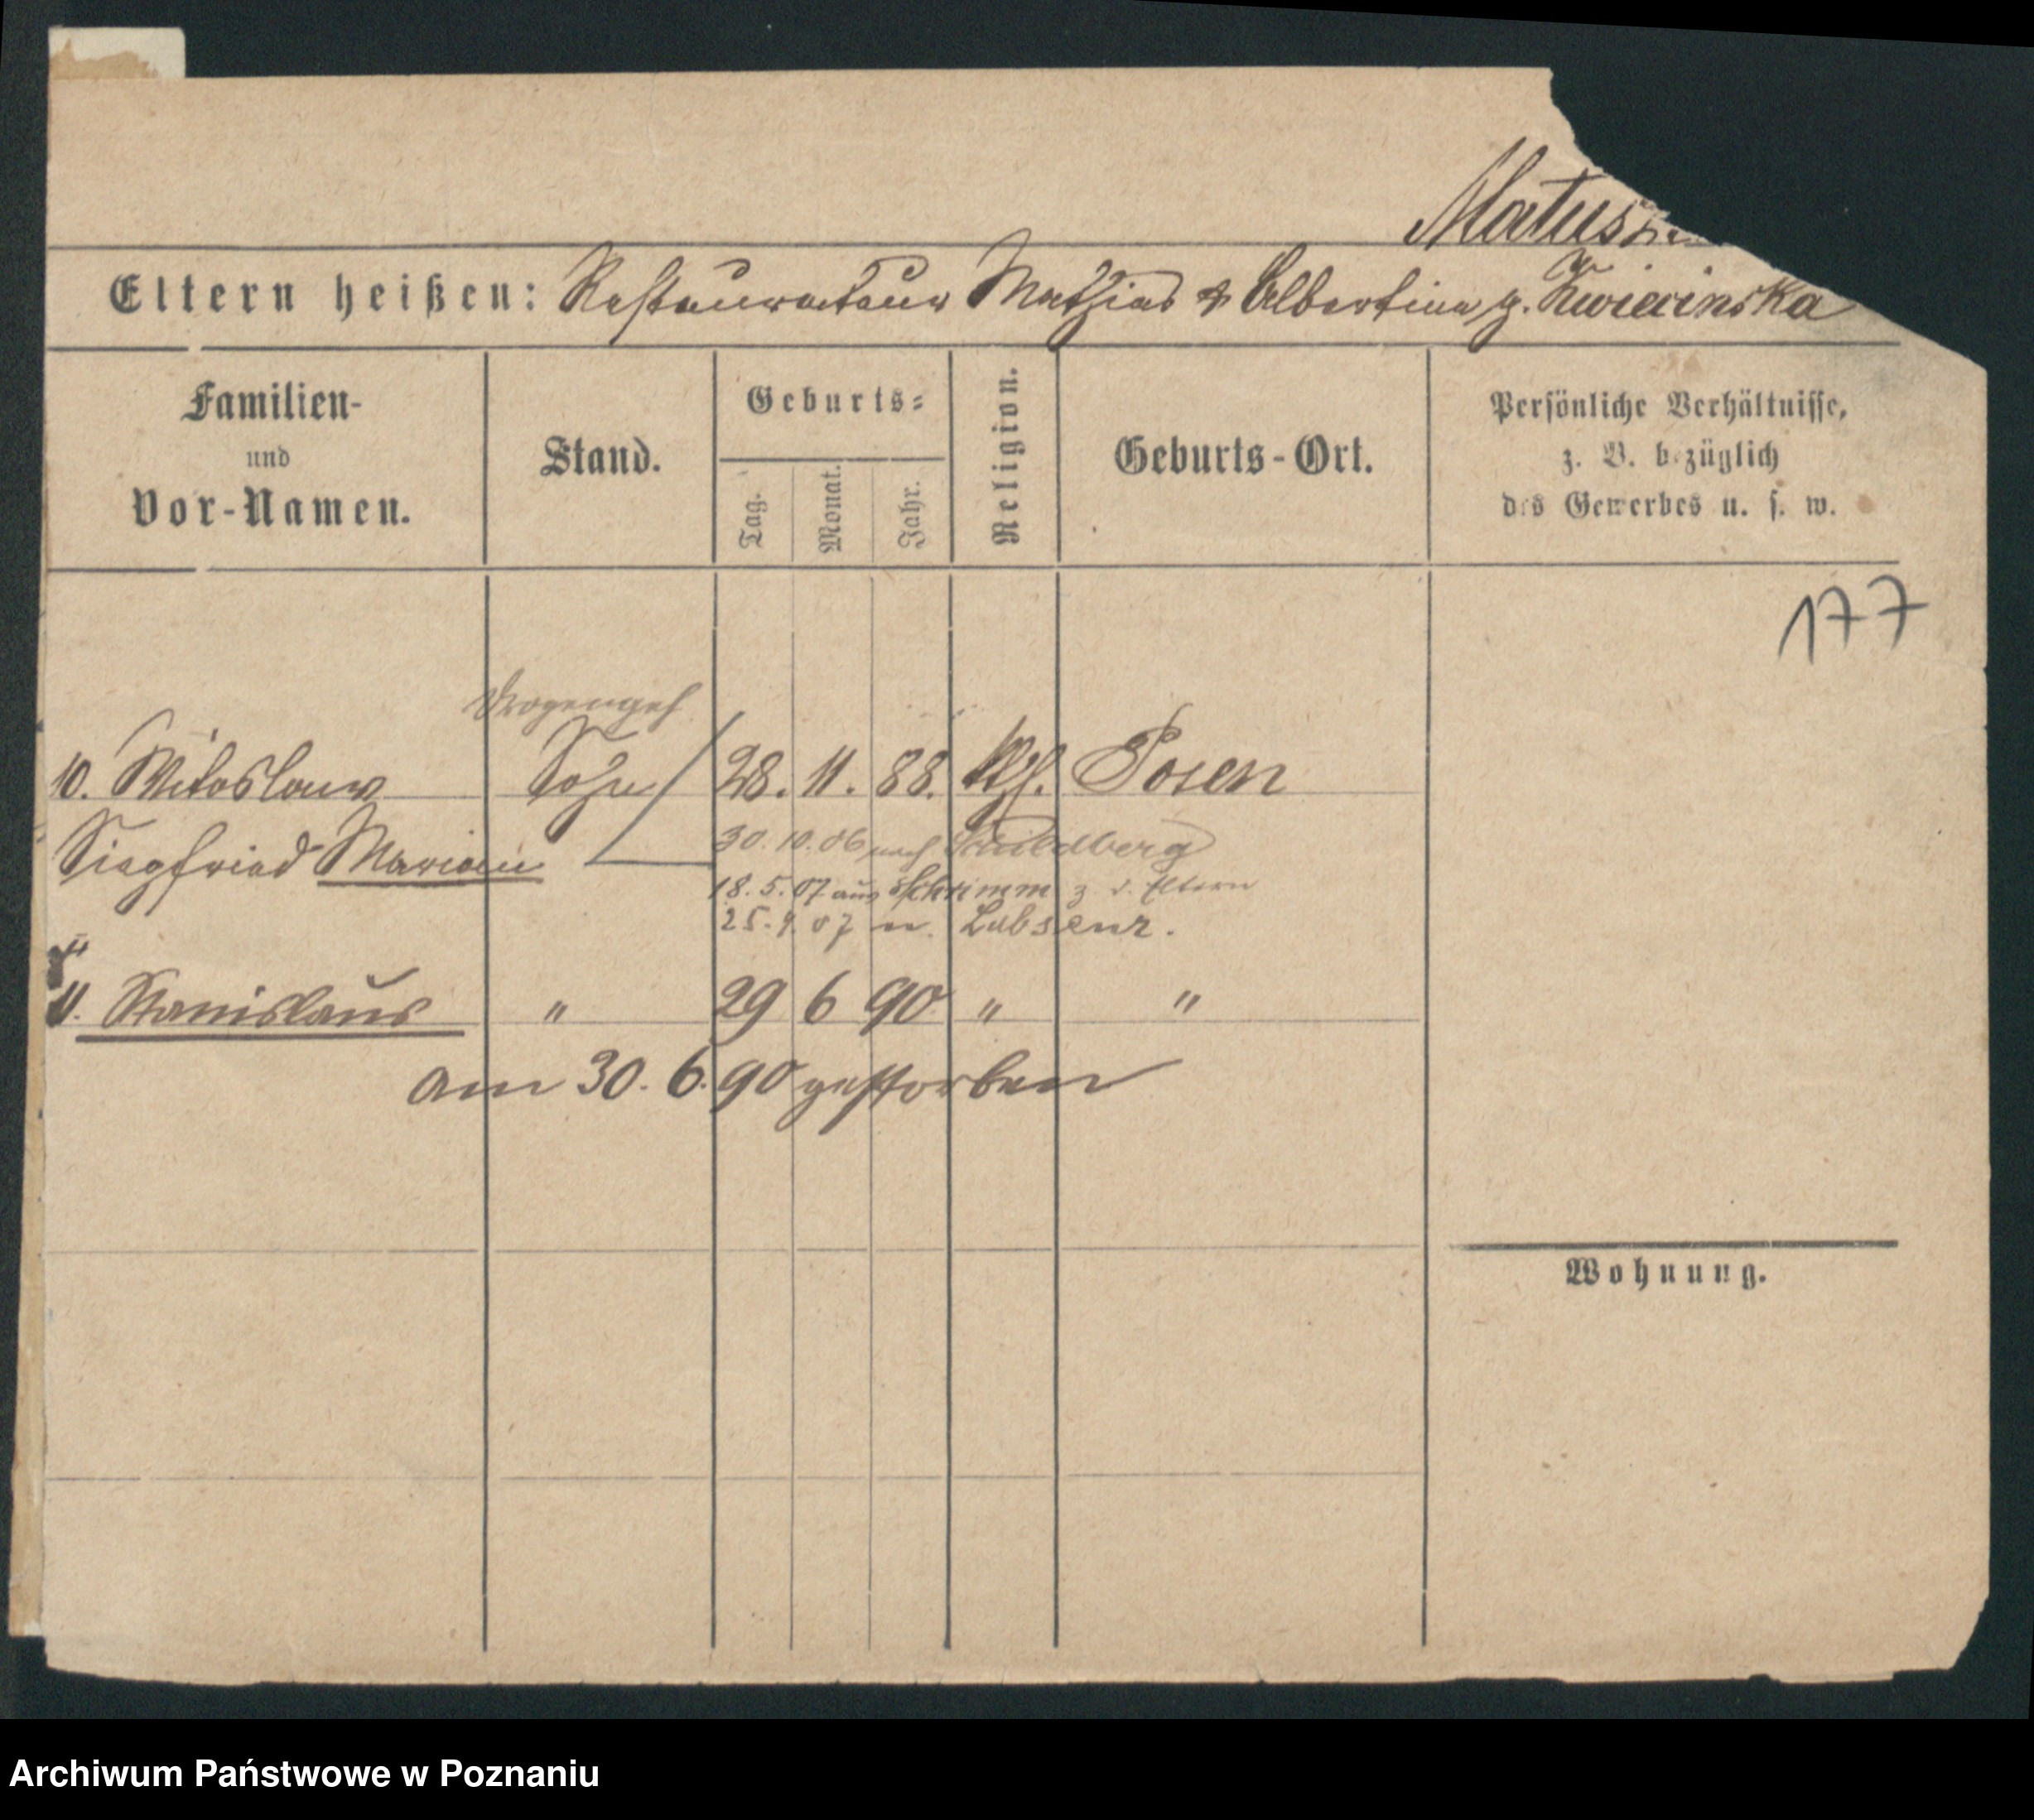 Matusz
Eltern heißen: Restaurateur Mathias & Albertine g. Kwiecinska
Familien-
und
Vor-Namen.
Stand.
Geburts-
Tag.
Monat.
Jahr.
Religion.
Geburts-Ort.
Persönliche Verhältnisse,
z. B. bezüglich
des Gewerbes u. s. w.
177
Drogengeh
10. Witoslaw Sohn 28. 11. 88. kth. Posen
Siegfried Marian
30. 10. 06 nach Schildberg
18. 5. 07 aus Schrimm z. d. Eltern
25. 9 07 n. Lobsenz.
11. Stanislaus " 29 6 90 " "
am 30. 6. 90 gestorben
Wohnung.
Archiwum Państwowe w Poznaniu